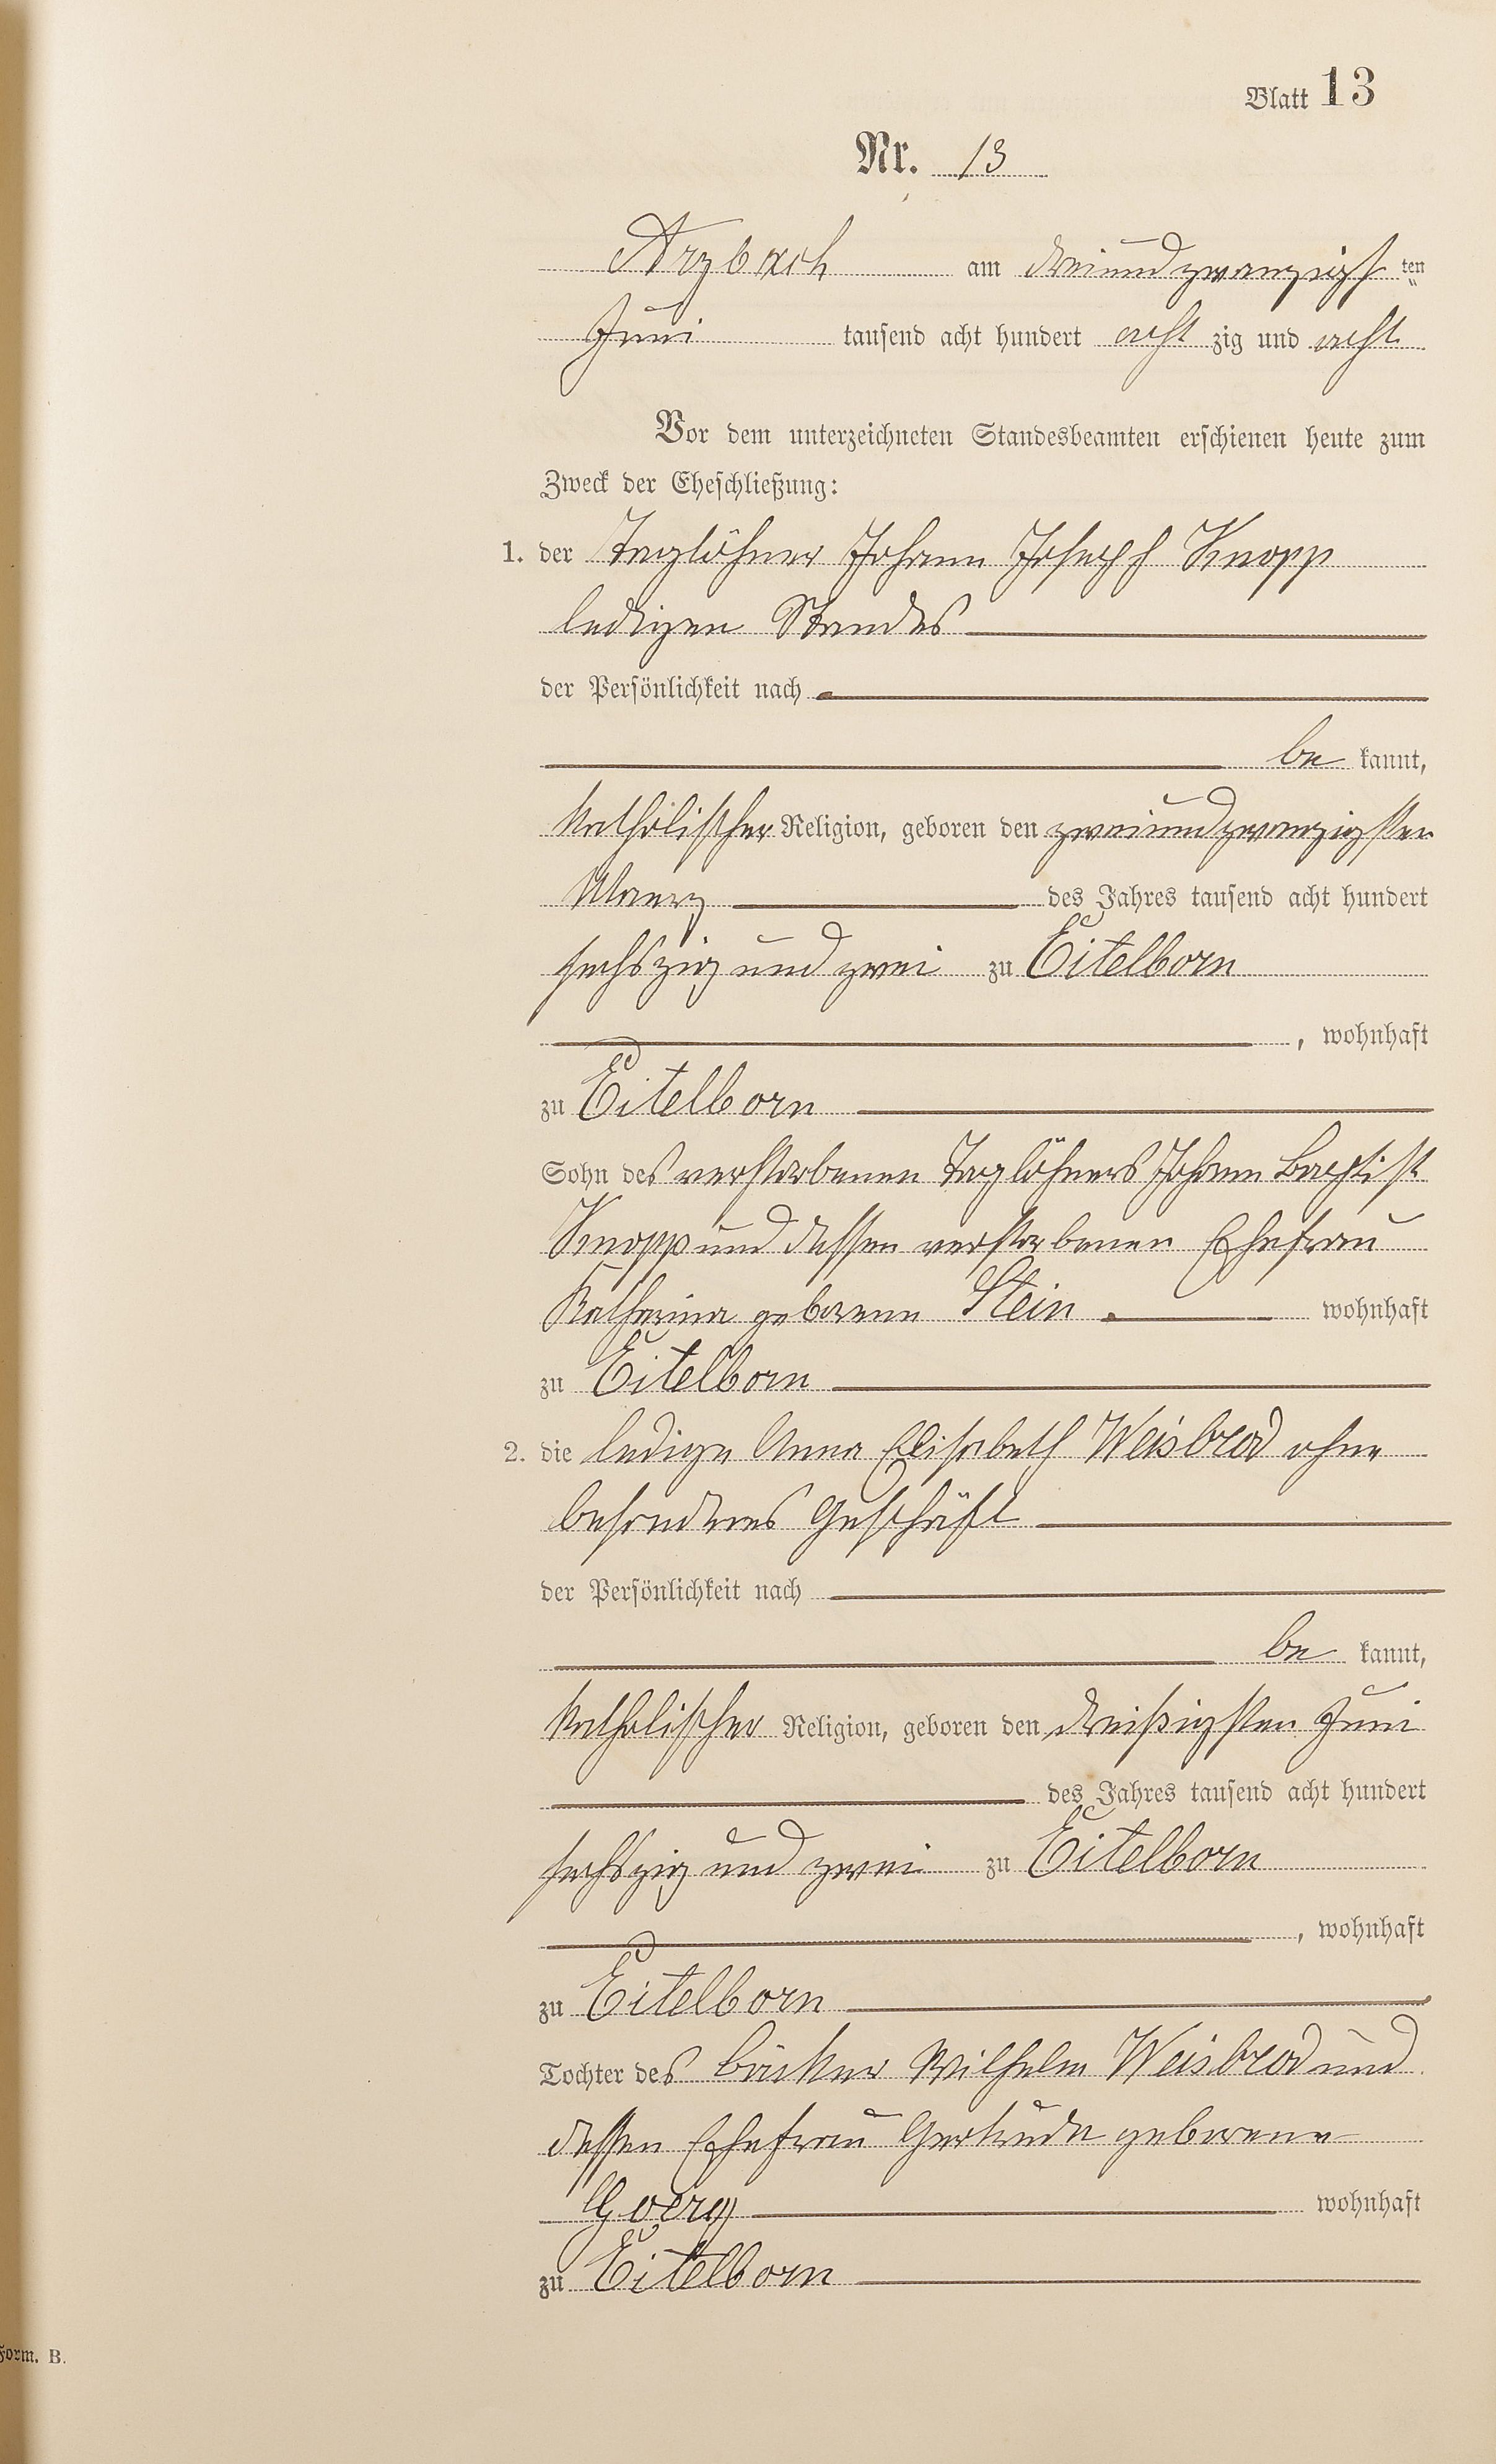 Blatt 13
Nr. 13
Arzbach am dreiundzwanzigsten
Juni tausend acht hundert achtzig und acht
Vor dem unterzeichneten Standesbeamten erschienen heute zum
Zweck der Eheschließung:
1. der Taglöhner Johann Joseph Knopp
ledigen Standes
der Persönlichkeit nach
be kannt,
katholischer Religion, geboren den zweiundzwanzigsten
Maerz des Jahres tausend acht hundert
sechszig und zwei zu Eitelborn
, wohnhaft
zu Eitelborn
Sohn des verstorbenen Taglöhners Johann Baptist
Knopp und dessen verstorbenen Ehefrau
Katharina geborene Stein wohnhaft
zu Eitelborn
2. die ledige Anna Elisabeth Weisbrod ohne
besonderes Geschäft
der Persönlichkeit nach
be kannt,
katholischer Religion, geboren den dreißigsten Juni
des Jahres tausend acht hundert
sechszig und zwei zu Eitelborn
, wohnhaft
zu Eitelborn
Tochter des Bäcker Wilhelm Weisbrod und
dessen Ehefrau Gertrude geborene
Goerg wohnhaft
zu Eitelborn
Form. B.